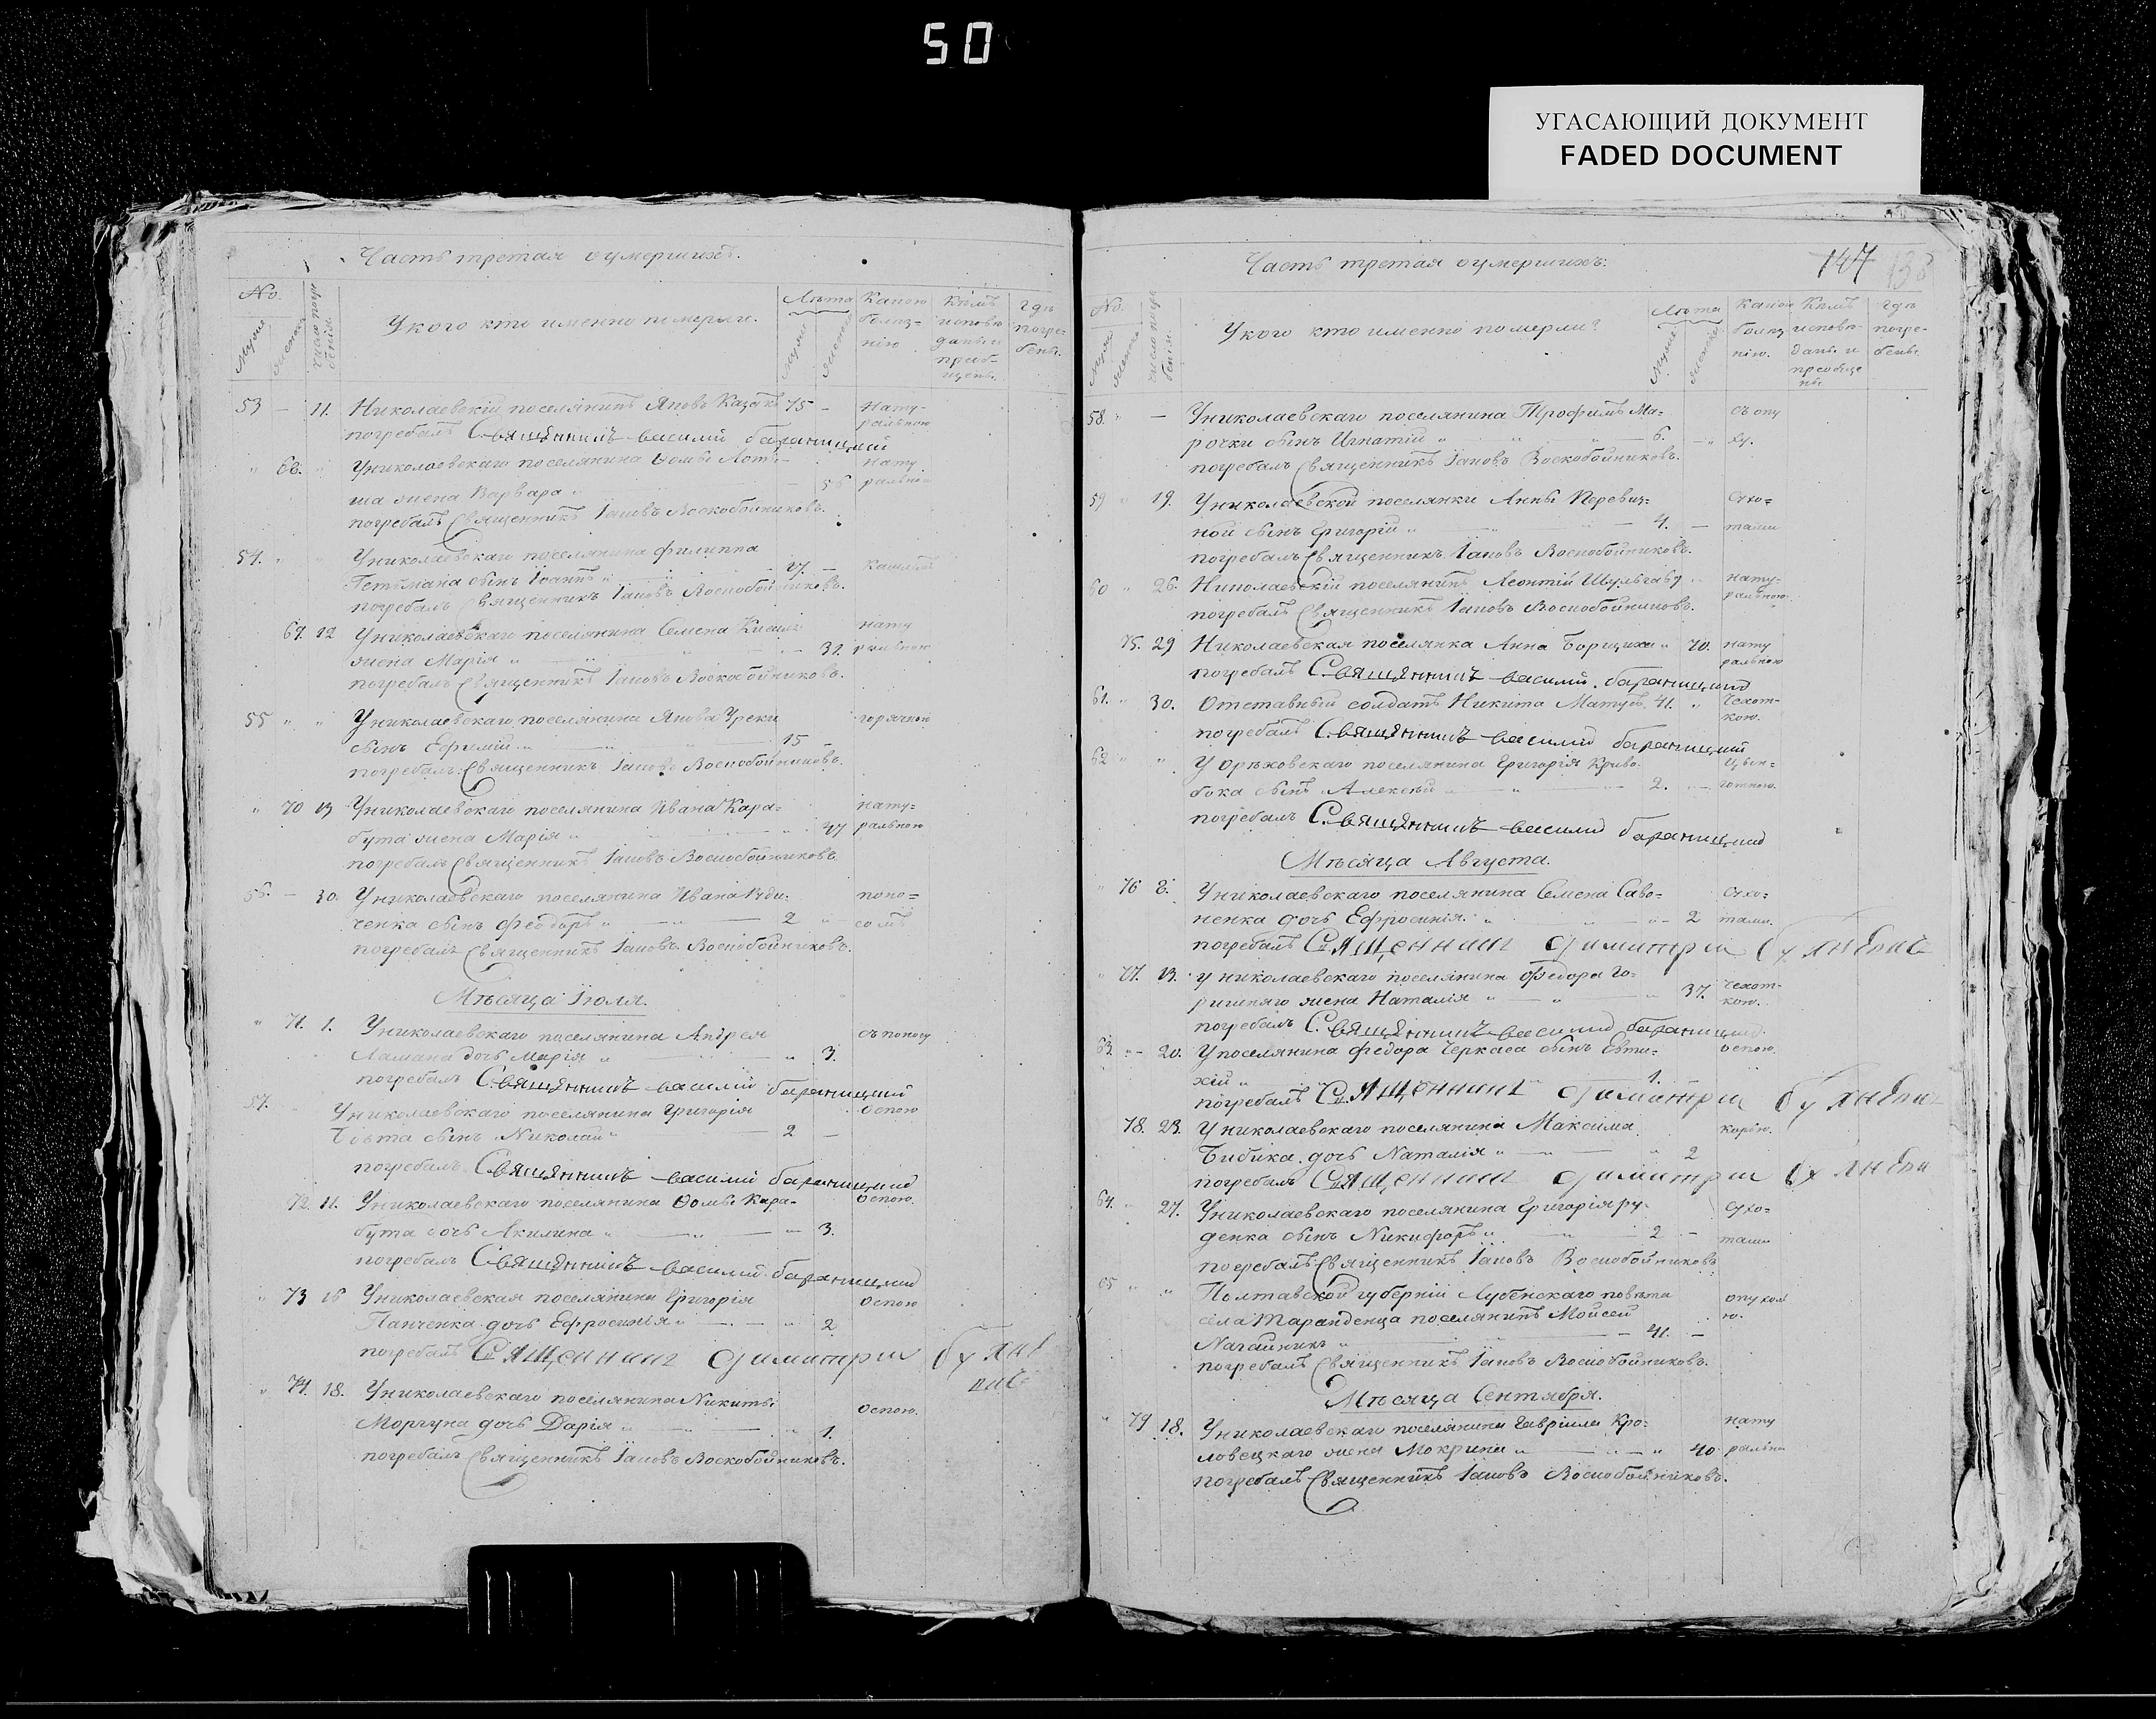 50
УГАСАЮЩИЙ ДОКУМЕНТ
FADED DOCUMENT
Часть третая оумершихъ.
No.
Мужеска
Женска
число погребенія
Укого кто именно померли.
Лѣта
Какою болѣзнію
Кѣмъ исповѣданы и пріобщены.
гдѣ погребены.
53 – 11. Николаевскій поселянинъ Яковъ Казакъ 75 – Нату-
погребалъ Священникъ василій бараницкій ральною
" 68. " Униколаевскаго поселянина Ѳомы нату
ша жена Варвара " – 56 ральною
погребалъ Священникъ Іаковъ Воскобойниковъ.
54. " " Униколаевскаго поселянина Филиппа
Гетьмана сынъ Іоаннъ " – кашлемъ
погребалъ Священникъ Іаковъ Воскобойниковъ.
69. 12 Униколаевскаго поселянина Семена нату
жена Марія " – 31. ральною
погребалъ Священникъ Іаковъ Воскобойниковъ.
55 " " Униколаевскаго поселянина Якова Греки горячкой
сынъ Ефимій " – 15 –
погребалъ Священникъ Іаковъ Воскобойниковъ.
" 70 13 Униколаевскаго поселянина Ивана Кара= нату=
бута жена Марія " – 47 ральною
погребалъ Священникъ Іаковъ Воскобойниковъ.
56. – 30. Униколаевскаго поселянина Ивана поно=
ченка сынъ Феодоръ " – 2 " сомъ
погребалъ Священникъ Іаковъ Воскобойниковъ.
Мѣсяца Іюля.
" 71. 1. Униколаевскаго поселянина Андрея съ поносу
Ламана дочь Марія " – " 3.
погребалъ Священникъ василій бараницкій
57. Униколаевскаго поселянина Григорія оспою
сынъ Николай " – 2 –
погребалъ Священникъ василій бараницкій
72. 11. Униколаевскаго поселянина Ѳомы Кара- оспою.
бута дочь Акилина " – " – 3.
погребалъ Священникъ василій бараницкій
" 73 16 Униколаевская поселянина Григорія оспою
Панченка дочь Ефросинія " – " 2
погребалъ Священникъ Димитрій
" 74. 18. Униколаевскаго поселянина Никиты оспою.
Моргуна дочь Дарія " – " 1.
погребалъ Священникъ Іаковъ Воскобойниковъ.
Часть третая оумершихъ.
147 138
No.
Мужеска
Женска
число погребенія
Укого кто именно померли?
Лѣта
Какою болѣзнію.
Кѣмъ исповѣданы и пріобщены
гдѣ погребены.
58. " – Униколаевскаго поселянина Трофимъ Ма= съ опу
рочки сынъ Игнатій " " " – 6. – "
погребалъ Священникъ Іаковъ Воскобойниковъ.
59 " 19. Униколаевской поселянки Анны Перевиз= сухо=
ной сынъ Григорій " – " – 4. – тами
погребалъ Священникъ Іаковъ Воскобойниковъ.
60 " 26. Николаевскій поселянинъ Леонтій нату=
погребалъ Священникъ Іаковъ Воскобойниковъ. ральною.
75. 29 Николаевская поселянка Анна Борщиха " 70. нату
погребалъ Священникъ василій бараницкій ральною
61. " 30. Отставный солдатъ Никита 41. " Чехот-
погребалъ Священникъ василій бараницкій кою.
62 " " У орѣховскаго поселянина Григорія Криво- Цын-
бока сынъ Алексѣй " – " – 2. – готною.
погребалъ Священникъ василій бараницкій
Мѣсяца Августа.
" 76 8. Униколаевскаго поселянина Семена Саво= сухо=
ненка дочь Ефросинія. " – 2 тами.
погребалъ Священникъ Димитрій
" 77. 13. у николаевскаго поселянина Ѳедора Го= чехот-
жена Наталія " – " – " 37. кою.
погребалъ Священникъ василій бараницкій
63. " – 20. Упоселянина Федора Черкаса сынъ Евти= оспою.
хій " – 1. –
погребалъ Священникъ Димитрій
78. 23. Униколаевскаго поселянина Максима корью.
Бибика. дочь Наталія " – " – 2
погребалъ Священникъ Димитрій
64. " 27. Униколаевскаго поселянина Григорія ру- сухо=
денка сынъ Никифоръ " – 2 – тами
погребалъ Священникъ Іаковъ Воскобойниковъ
65 " " Полтавской губерніи Лубенскаго повѣта опухол
села Таранденца поселянинъ Моисей ю.
– 41. –
погребалъ Священникъ Іаковъ Воскобойниковъ.
Мѣсяца Сентября.
" 79 18. Униколаевскаго поселянина Гавріила Кро= нату
ловецкаго жена Мокрина " – " – " 40 ральн
погребалъ Священникъ Іаковъ Воскобойниковъ.